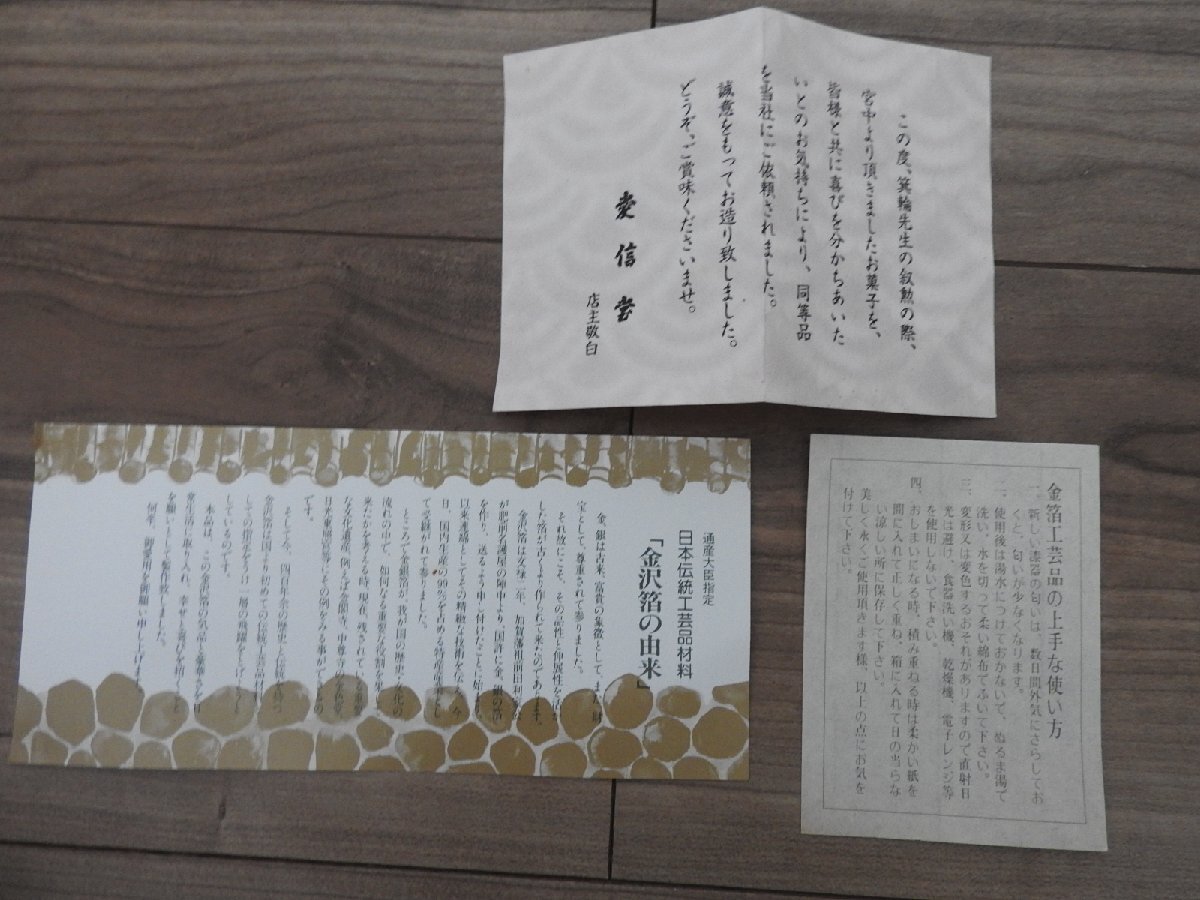 この度、箕輪先生の叙勲の際、
宮中より頂きましたお菓子を、
皆様と共に喜びを分かちあいた
いとのお気持ちにより、同等品
を当社にご依頼されました。
誠意をもってお造り致しました。
どうぞ、ご賞味くださいませ。
愛信堂
店主敬白
通産大臣指定
日本伝統工芸品材料
「金沢箔の由来」
金、銀は古来、富貴の象徴として、また、財
宝として、尊重されて参りました。
それ故にこそ、その品性と伸展性を活か
した箔が古くより作られて来たのであります。
金沢箔は文禄二年、加賀藩祖前田利家公
が肥前名護屋の陣中より、国許に金、銀の箔
を作り、送るよう申し付けたことに始まり
以来連綿としてその精緻な技術を伝え、今
日、国内生産の99%を占める特産産業とし
て受継がれて参りました。
ところで金銀箔が、我が国の歴史、文化の
流れの中で、如何なる重要な役割を果して
来たかを考える時、現在、残されている重要
な文化遺産、例えば金閣寺、中尊寺の金色堂
日光東照宮等にその例をみる事ができるの
です。
そして今、四百年余の歴史と伝統を誇る
金沢箔は国より初めての伝統工芸品材料
としての指定をうけ一層の飛躍をしようと
しているのです。
本品は、この金沢箔の気品と豪華さを日
常生活に取り入れ、幸せと喜びを招くこと
を願いとして製作致しました。
何卒、御愛用を御願い申し上げます。
金箔工芸品の上手な使い方
一、新しい漆器の匂いは、数日間外気にさらしてお
くと、匂いが少なくなります。
二、使用後は湯水につけておかないで、ぬるま湯で
洗い、水を切って柔い綿布でふいて下さい。
三、変形又は変色するおそれがありますので直射日
光は避け、食器洗い機、乾燥機、電子レンジ等
を使用しないで下さい。
四、おしまいになる時、積み重ねる時は柔かい紙を
間に入れて正しく重ね、箱に入れて日の当らな
い涼しい所に保存して下さい。
美しく永くご使用頂きます様、以上の点にお気を
付けて下さい。